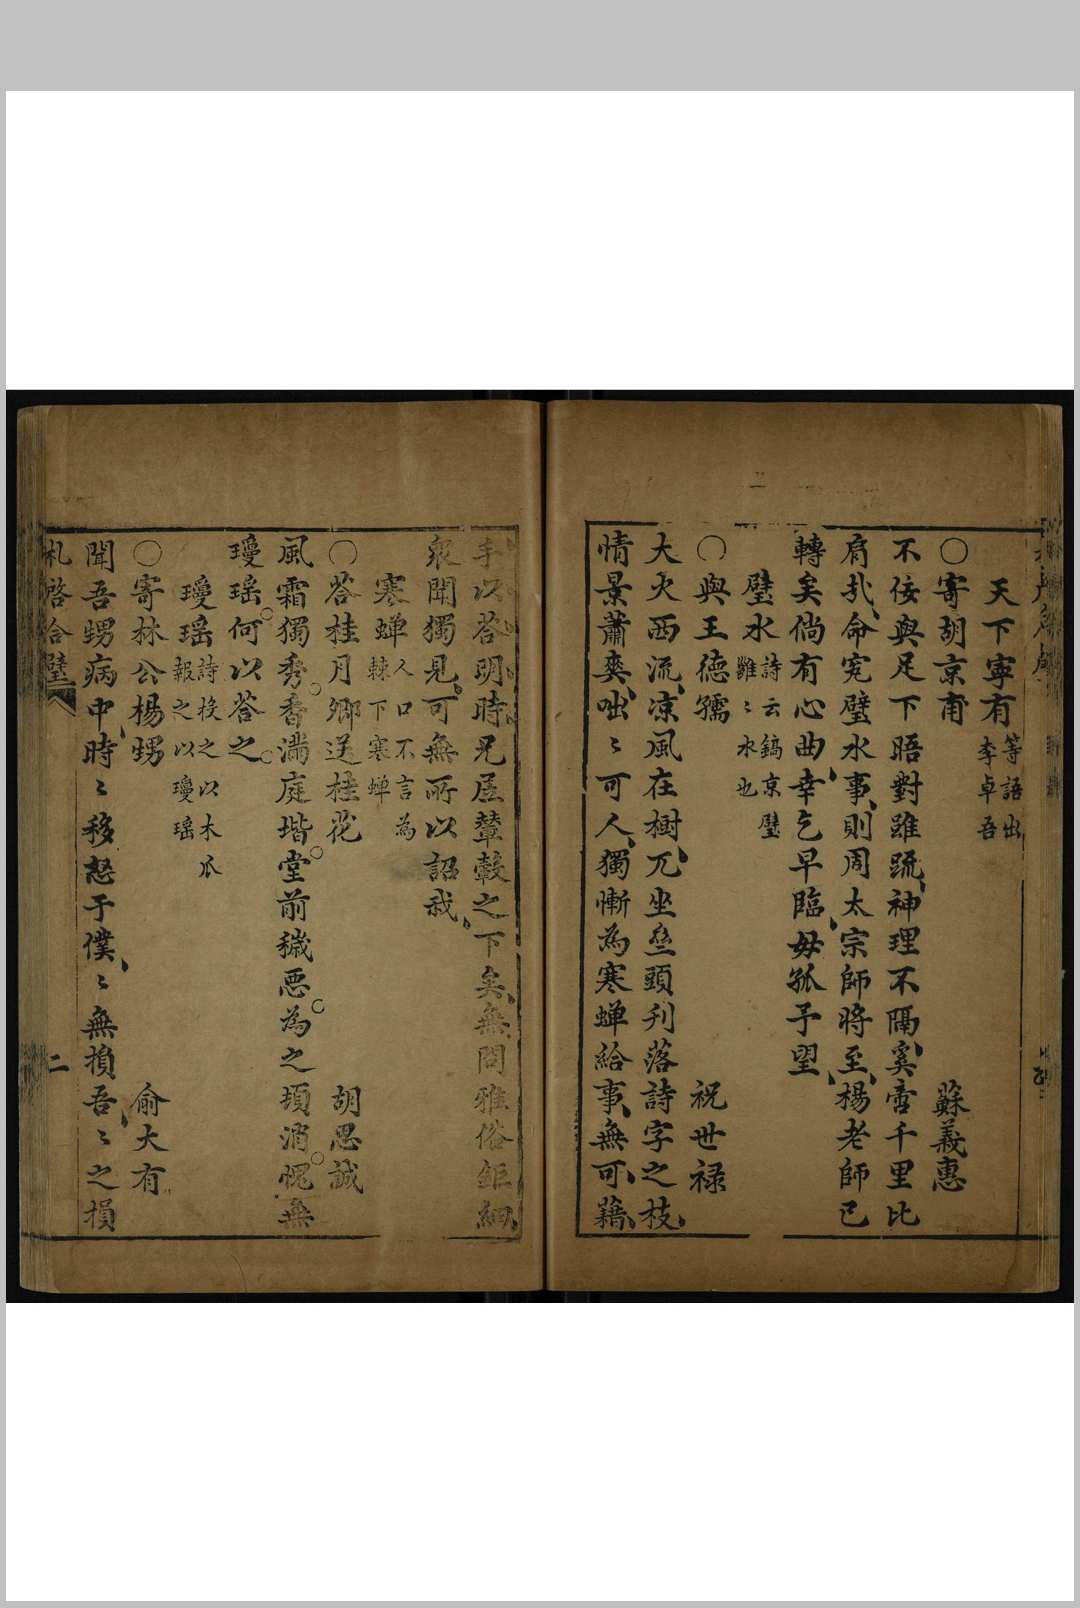 天下寧有等語出李卓吾
○寄胡京甫 蘇義惠
不佞與足下晤對雖疏神理不隔奚啻千里比
肩㢤命寃璧水事則周太宗師將至楊老師已
轉矣倘有心曲幸乞早臨毋孤予望
璧水詩云鎬京璧雝〻水也
○與王德孺 祝世禄
大火西流凉風在樹兀坐壘頭刋落詩字之枝
情景蕭爽咄〻可人獨慚為寒蝉給事無可藉
手以荅明時兄居輦轂之下矣無問雅俗鉅細
衆聞獨見可無所以詔我
寒蝉人口不言為棘下寒蝉
○荅桂月卿送桂花 胡思誠
風霜獨秀香滿庭堦堂前穢惡為之頓消愧無
瓊瑶何以荅之
瓊瑶詩投之以木瓜報之以瓊瑶
○寄林公楊甥 俞大有
聞吾甥病中時〻移怒于僕〻無損吾〻之損
札啓合璧 二